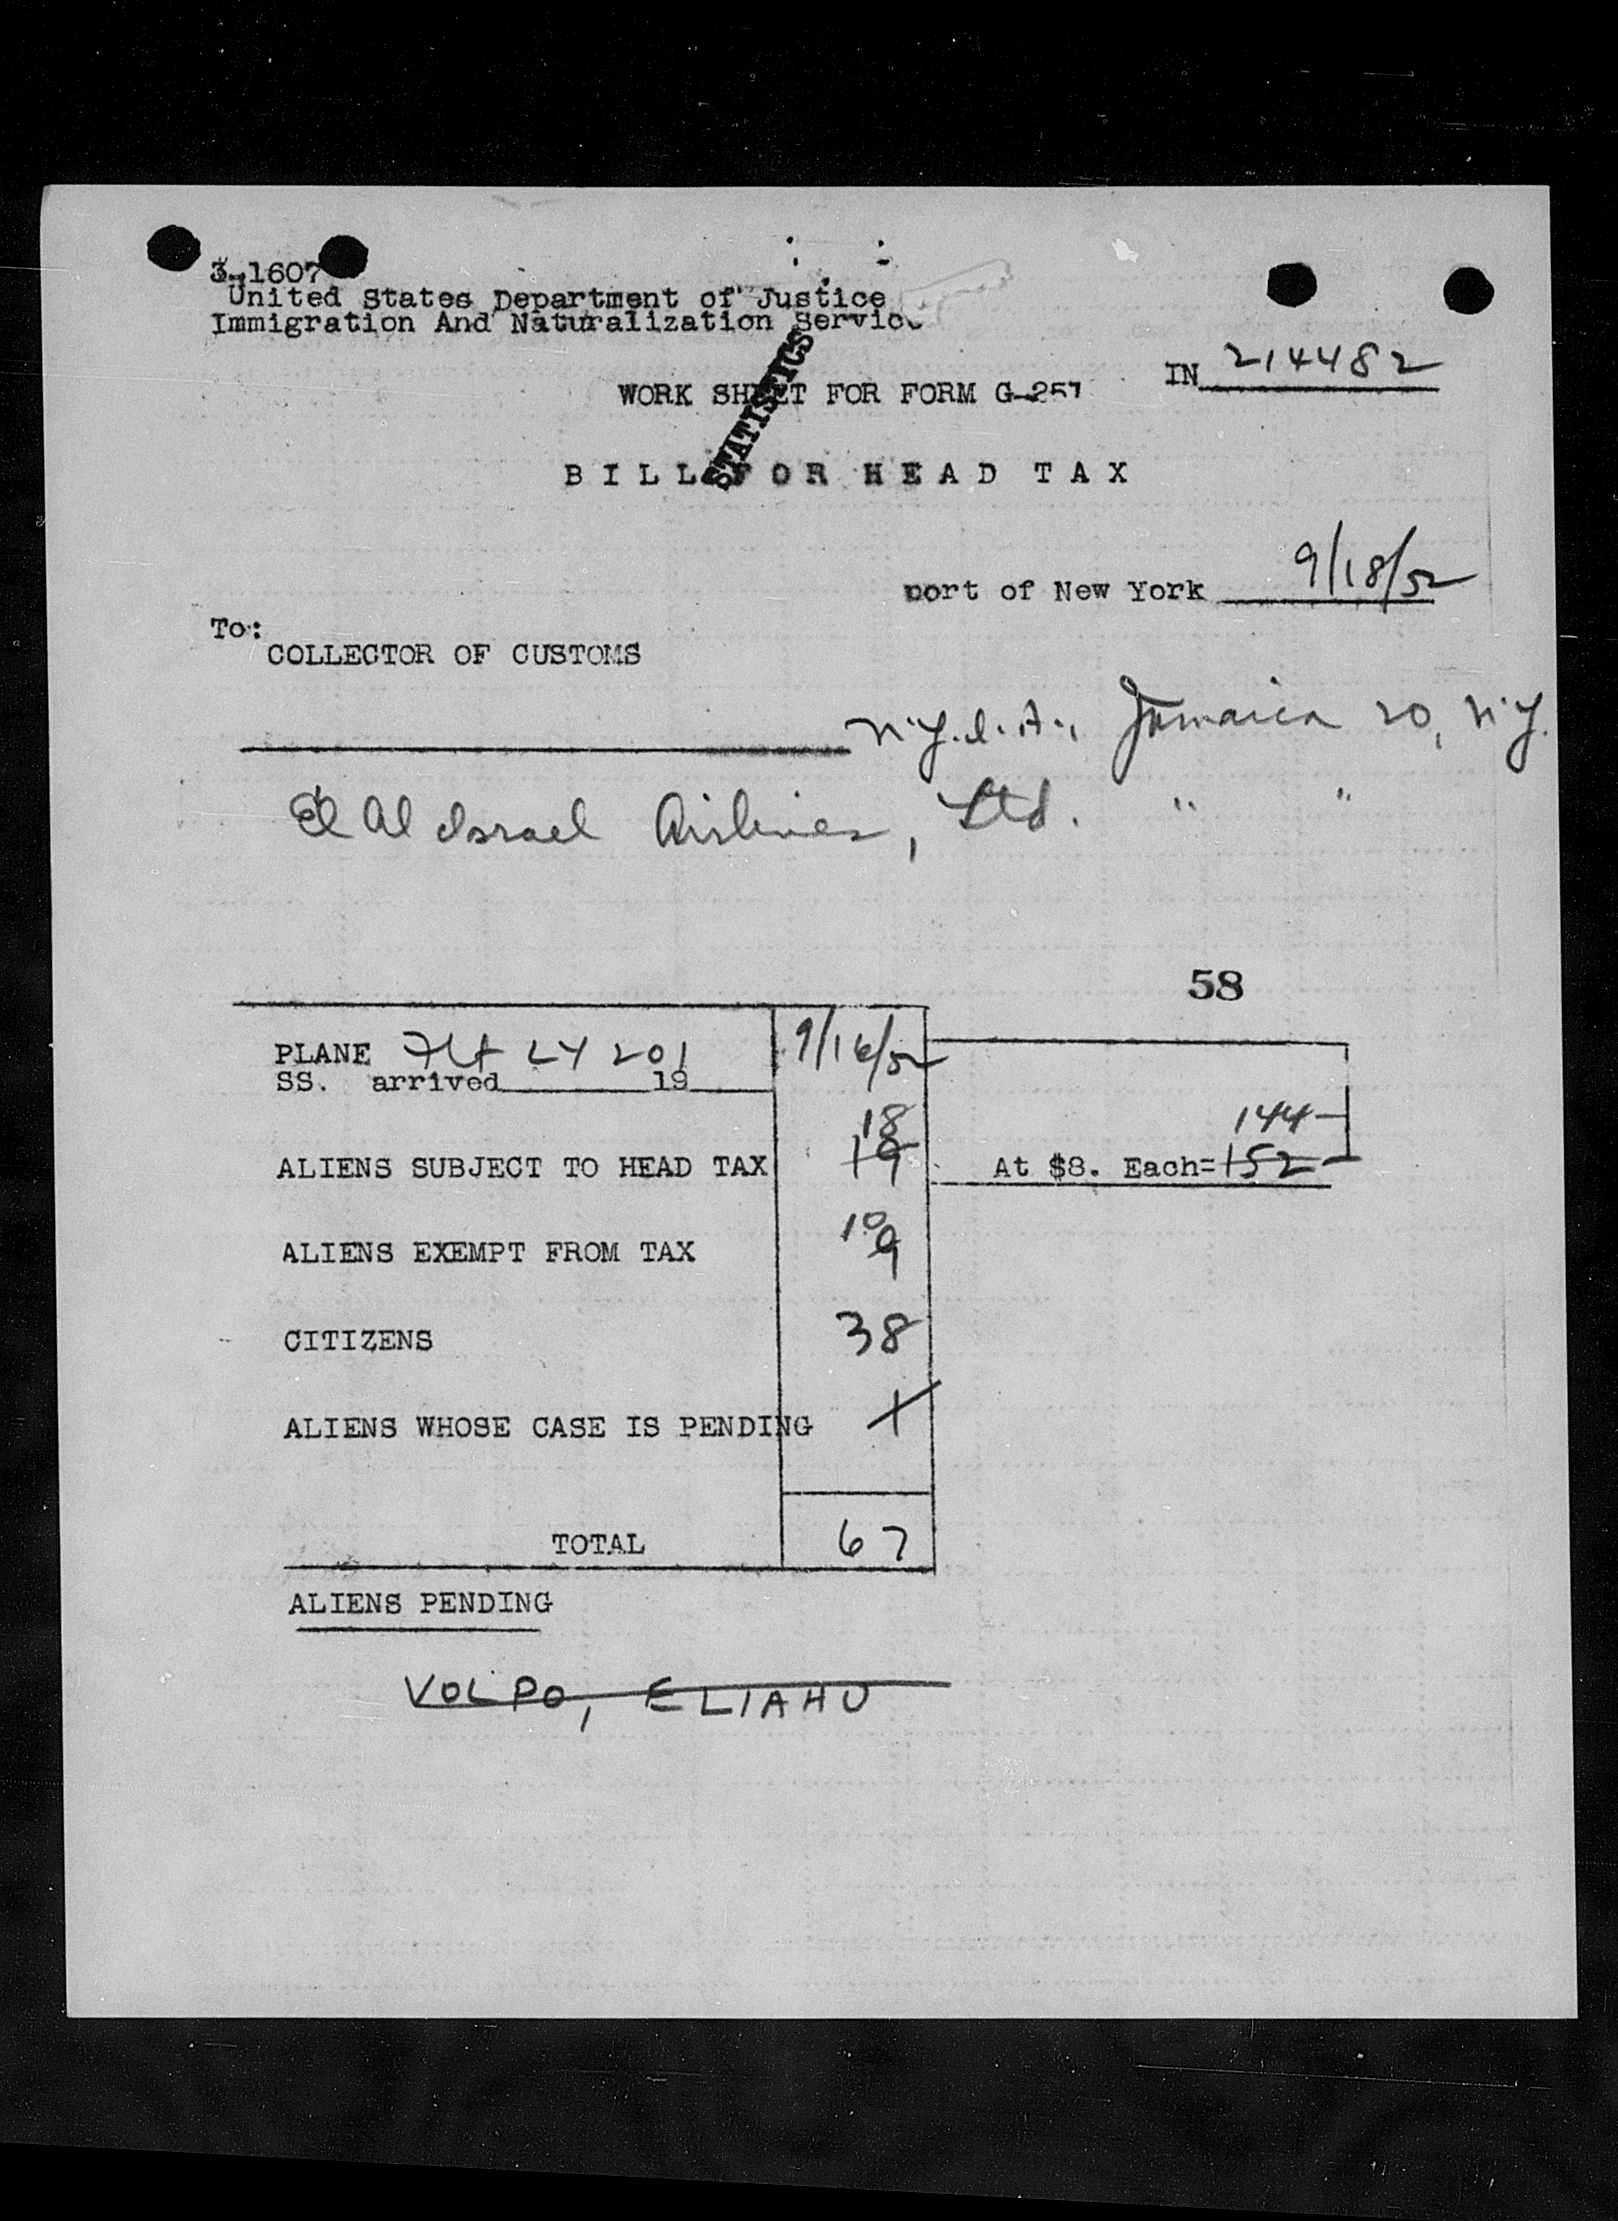 3-1607
United States Department of Justice
Immigration And Naturalization Service
STATISTICS
IN 214482
WORK SHEET FOR FORM G-257
BILL FOR HEAD TAX
port of New York 9/18/52
To:
COLLECTOR OF CUSTOMS
N.Y.I.A., Jamaica 20, N.Y.
El Al Israel Airlines, Ltd. " "
58
PLANE Flt LY 201 9/16/52
SS. arrived 19
18 144
ALIENS SUBJECT TO HEAD TAX 19 At $8. Each= 152
ALIENS EXEMPT FROM TAX 10 9
CITIZENS 38
ALIENS WHOSE CASE IS PENDING 1
TOTAL 67
ALIENS PENDING
VOLPO, ELIAHU